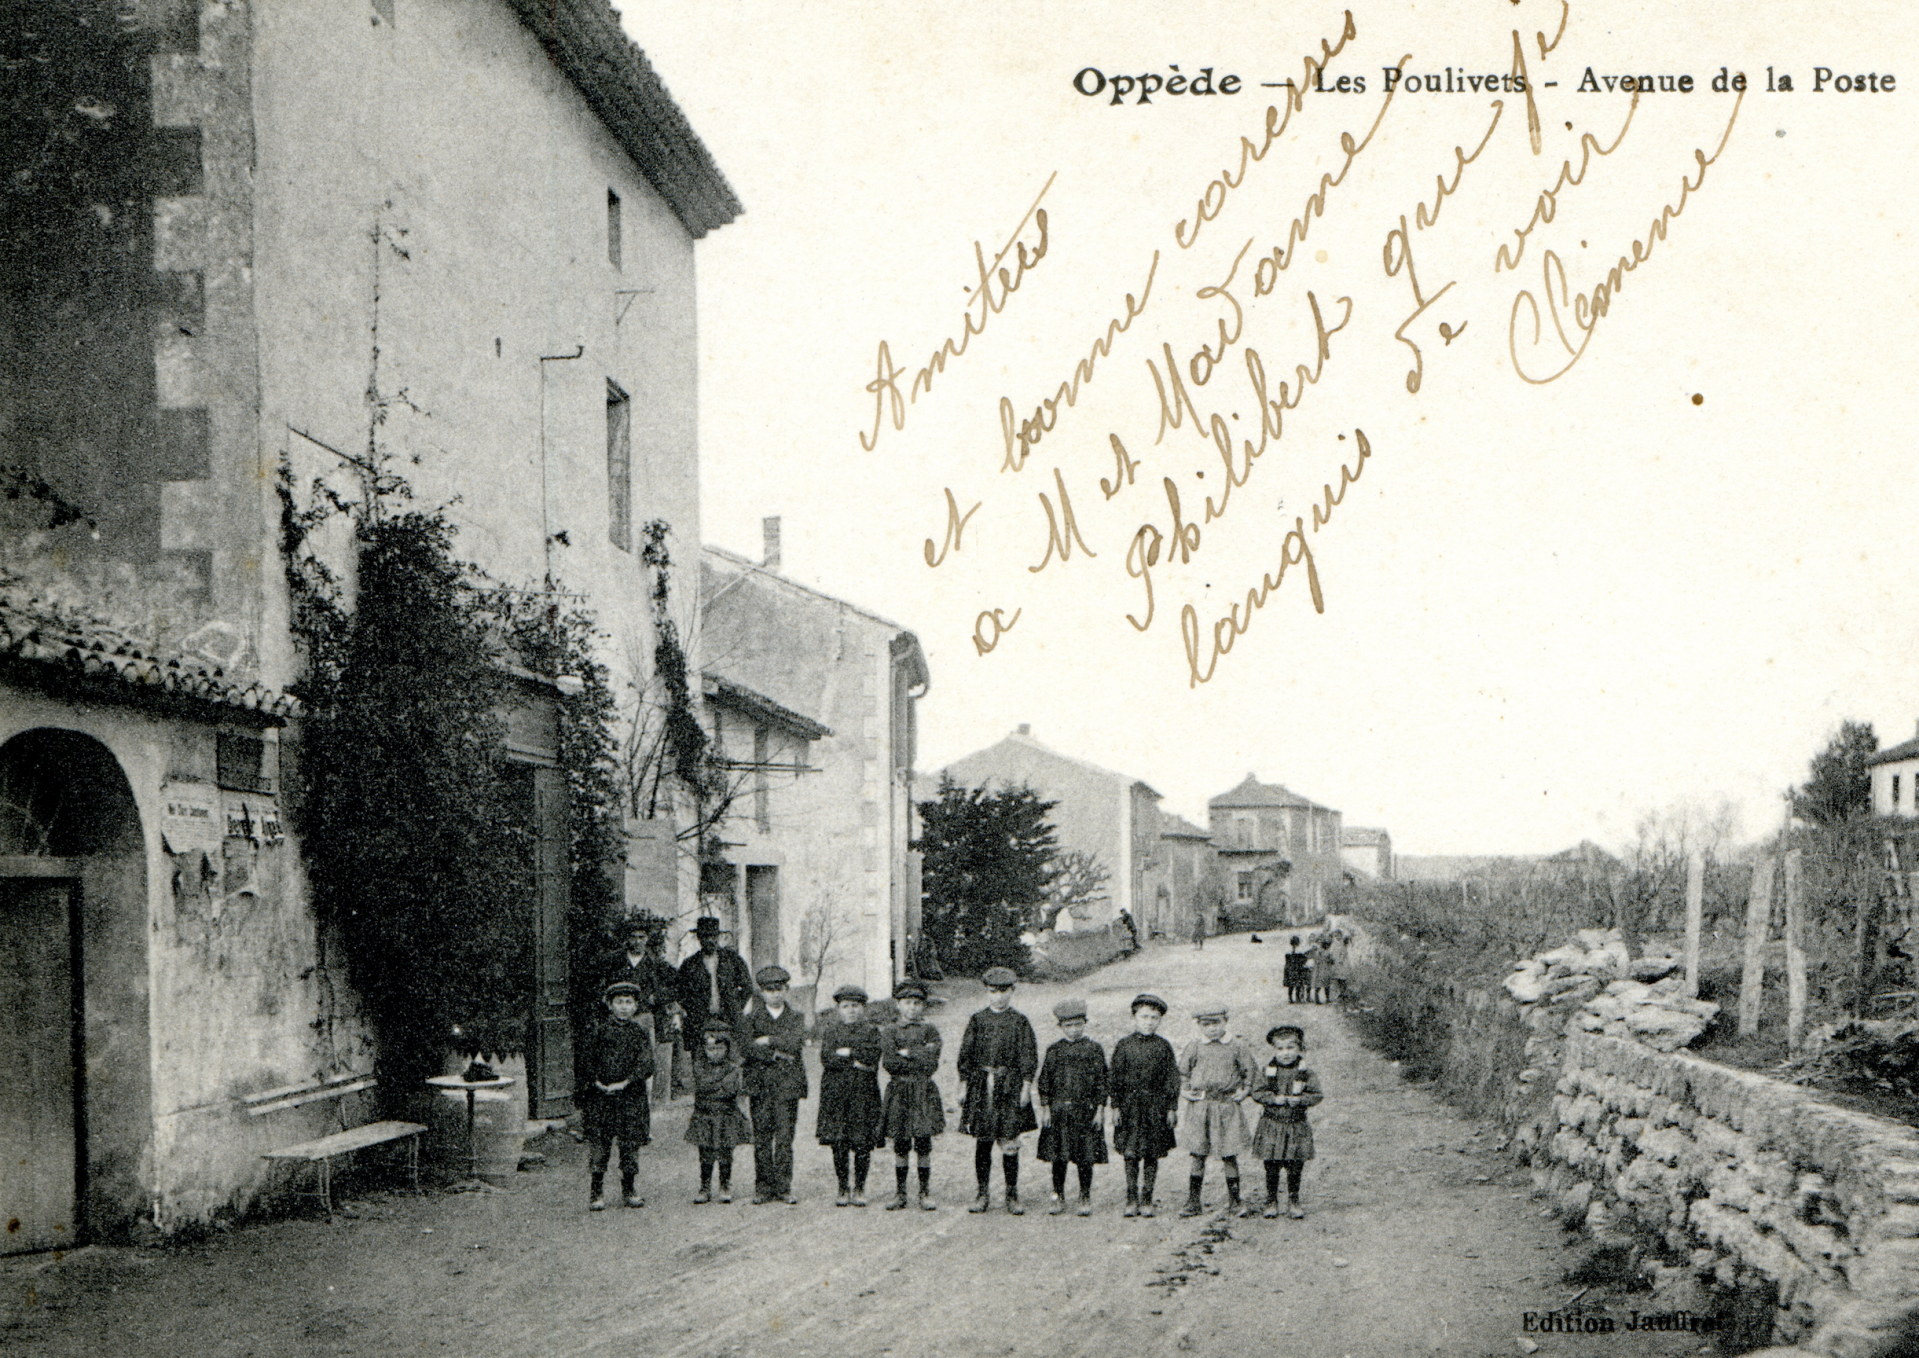 Oppède — Les Poulivets - Avenue de la Poste
Amitiés
et bonne caresses
a M et Madame
Philibert que je
languis de voir
Clémence
Edition Jauffret